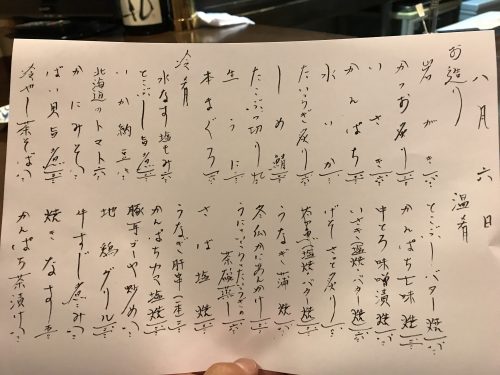 八月六日
お造り
岩がき
かつお炙り
いさき
かんぱち
水いか
たいうざき炙り
しめ鯖
たこぶつ切り
生うに
本まぐろ
冷肴
水なす塩もみ
とこぶし旨煮
いか納豆
北海道のトマト
かにみそ
ばい貝旨煮
冷やし茶そば
温肴
とこぶしバター焼
かんぱち七味焼
中とろ味噌漬焼
いさき(塩焼・バター焼)
げそさっと炙り
うなぎ蒲焼
冬瓜かにあんかけ
茶碗蒸し
さば塩焼
うなぎ肝串(一本)
かんぱちカマ塩焼
豚耳ゴーヤ炒め
地鶏グリル
牛すじ煮こみ
焼きなす
かんぱち茶漬け